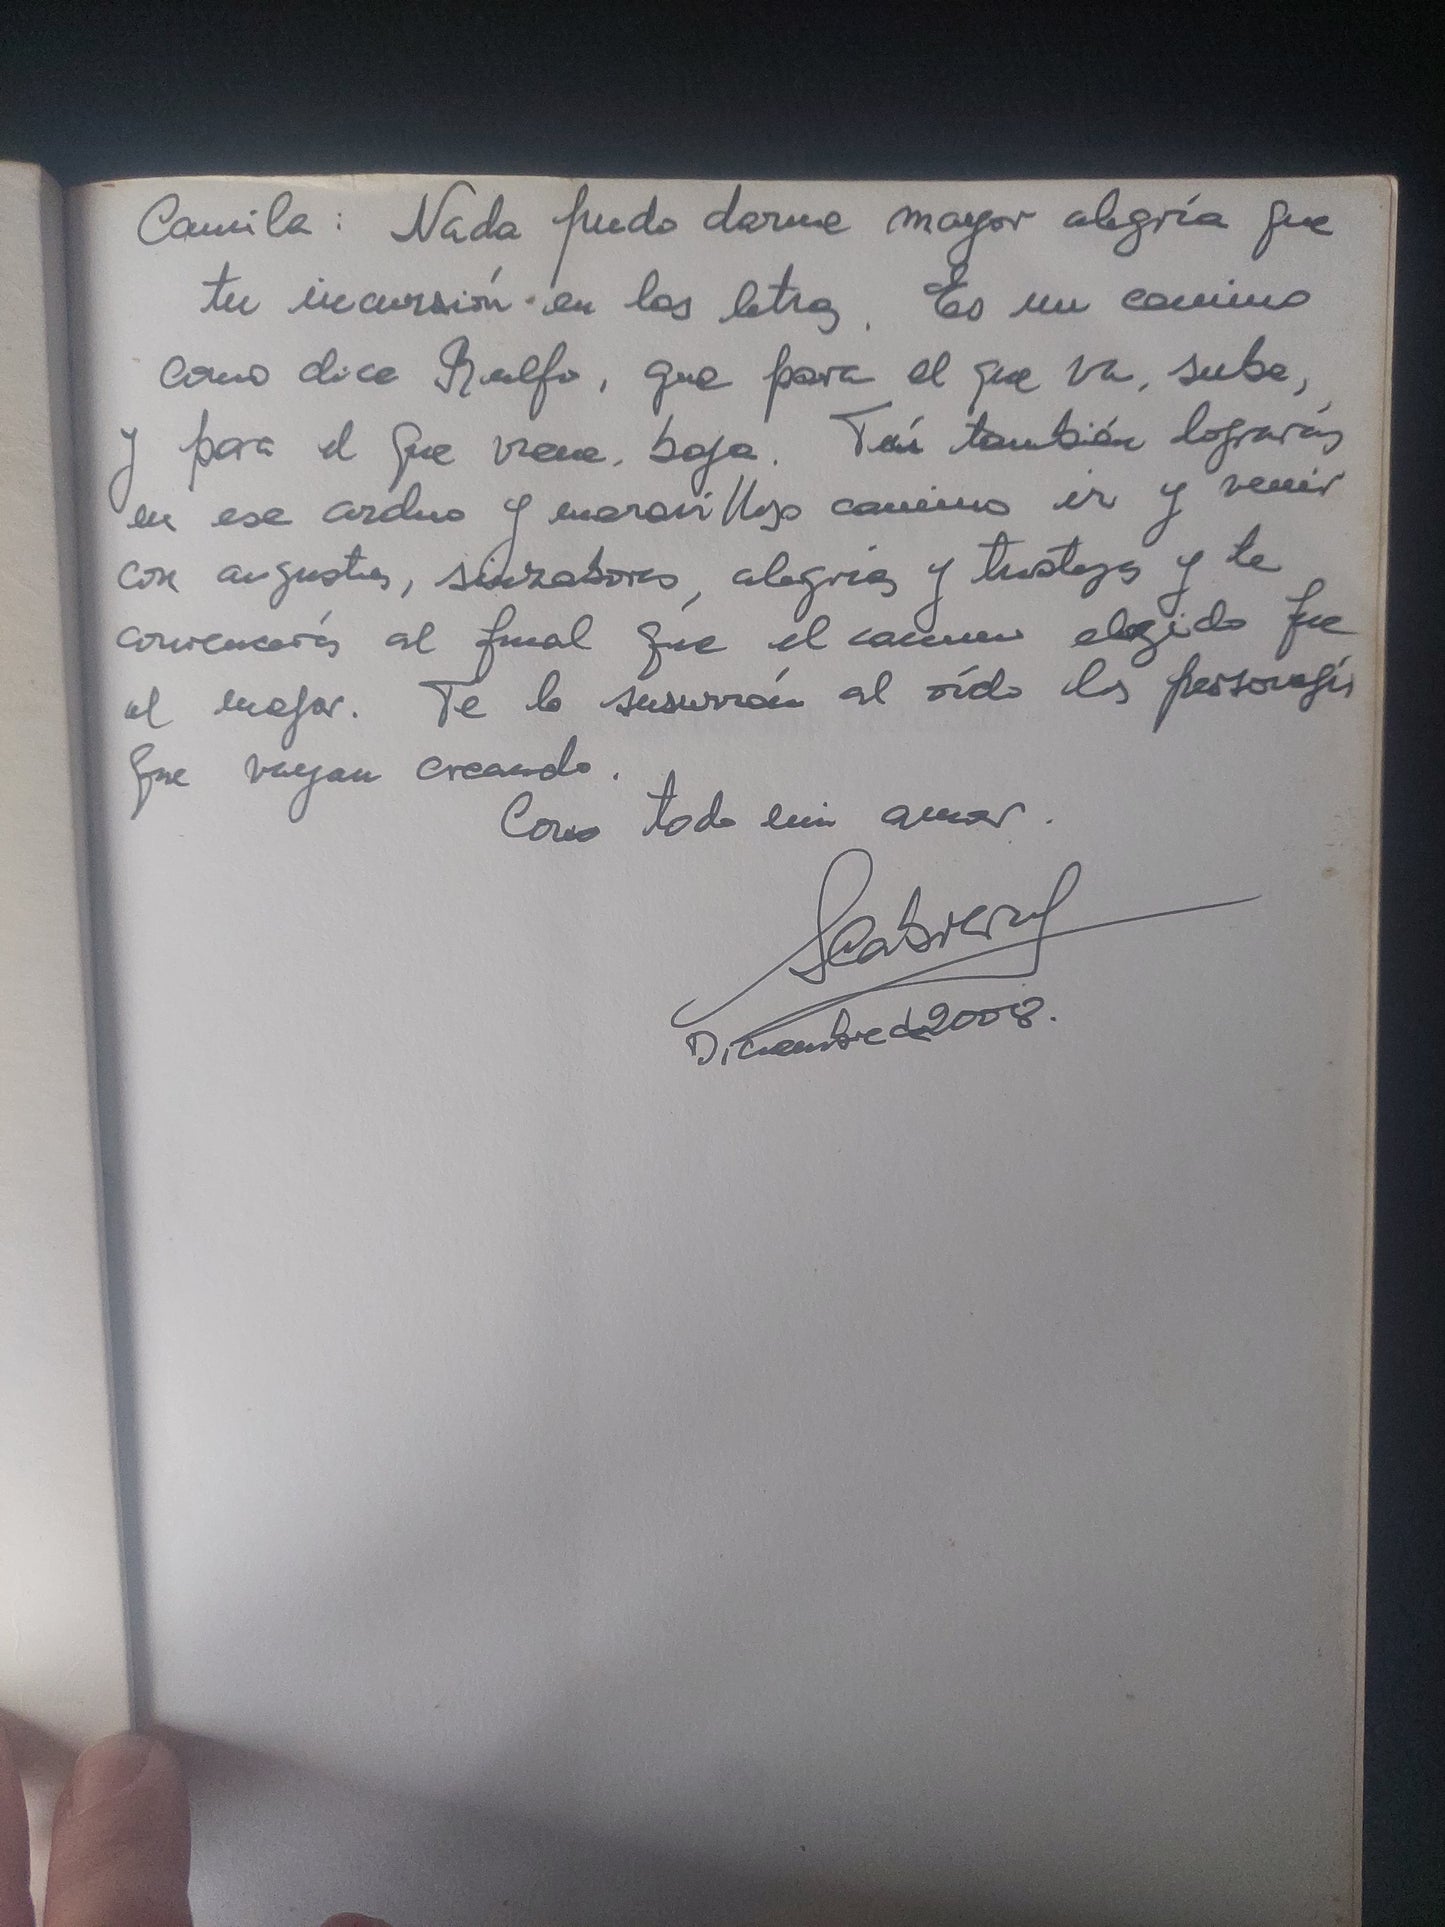 Camila: Nada pudo darme mayor alegría que
tu incursión en las letras. Es un camino
como dice Rulfo, que para el que va, sube,
y para el que viene, baja. Tú también lograrás
en ese arduo y maravilloso camino ir y venir
con angustias, sinzabores, alegrías y tristezas y te
convencerás al final que el camino elegido fue
el mejor. Te lo susurrán al oído los personajes
que vayan creando.
Como todo mi amor.
Diciembre de 2008.